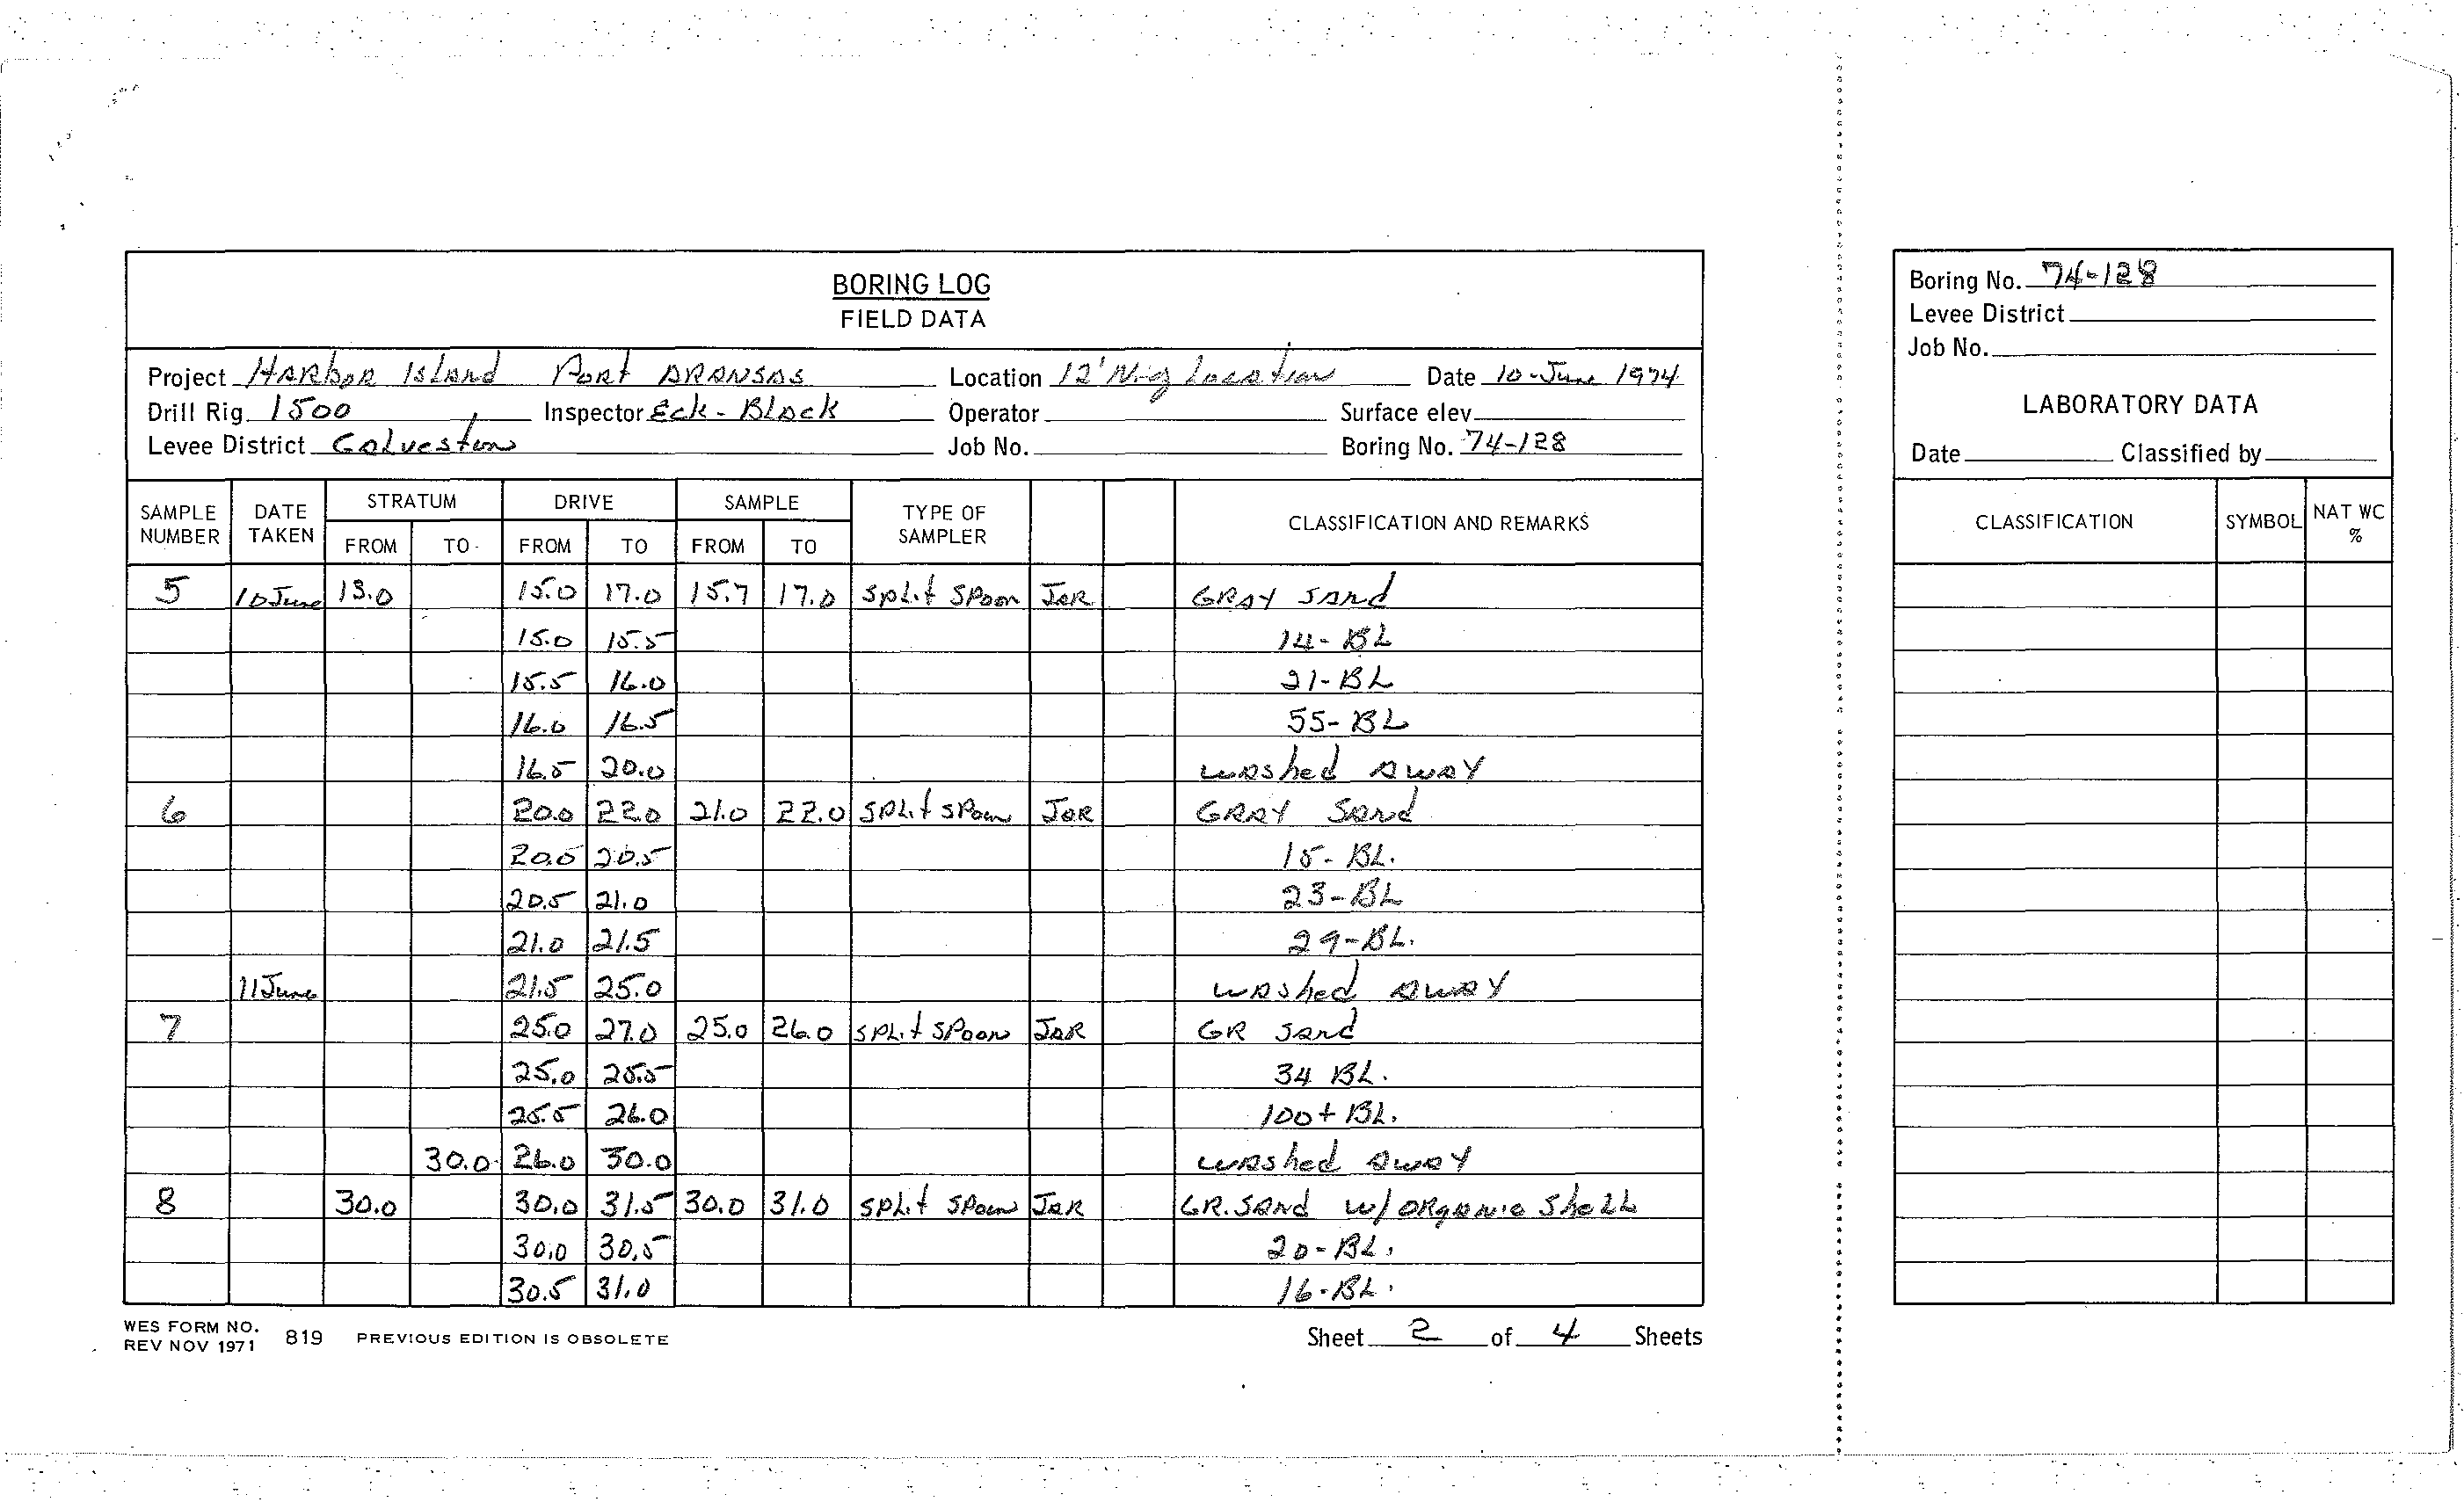 BORING LOG
FIELD DATA
Project HARbor Island Port ARANSAS Location 12' Location Date 10-June 1974
Drill Rig 1500 Inspector Eck-Block Operator Surface elev.
Levee District Galveston Job No. Boring No. 74-128
SAMPLE NUMBER DATE TAKEN STRATUM FROM TO DRIVE FROM TO SAMPLE FROM TO TYPE OF SAMPLER CLASSIFICATION AND REMARKS
5 10 June 13.0 15.0 17.0 15.7 17.0 Split Spoon JAR GRAY SAnd
15.0 15.5 14-BL
15.5 16.0 21-BL
16.0 16.5 55-BL
16.5 20.0 WAshed AWAY
6 20.0 22.0 21.0 22.0 SPLit SPoon JAR GRAY SAnd
20.0 20.5 15-BL.
20.5 21.0 23-BL
21.0 21.5 29-BL.
11 June 21.5 25.0 WAshed AWAY
7 25.0 27.0 25.0 26.0 SPLit SPoon JAR GR SAnd
25.0 25.5 34 BL.
25.5 26.0 100+ BL.
30.0 26.0 30.0 WAshed AWAY
8 30.0 30.0 31.5 30.0 31.0 SPLit SPoon JAR GR. SANd w/ ORgANic SheLL
30.0 30.5 20-BL.
30.5 31.0 16-BL.
WES FORM NO. 819 PREVIOUS EDITION IS OBSOLETE
REV NOV 1971
Sheet 2 of 4 Sheets
Boring No. 74-128
Levee District
Job No.
LABORATORY DATA
Date Classified by
CLASSIFICATION SYMBOL NAT WC %